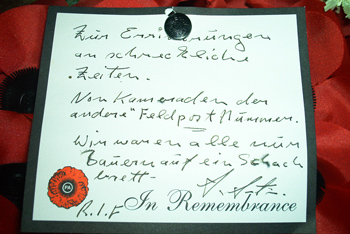 Zur Erinnerungen
an schreckliche
Zeiten.
Von Kameraden der
andere" Feldpost Nummer.
Wir waren alle nur
Bauern auf ein Schach
brett-
PA
R.I.P
In Remembrance